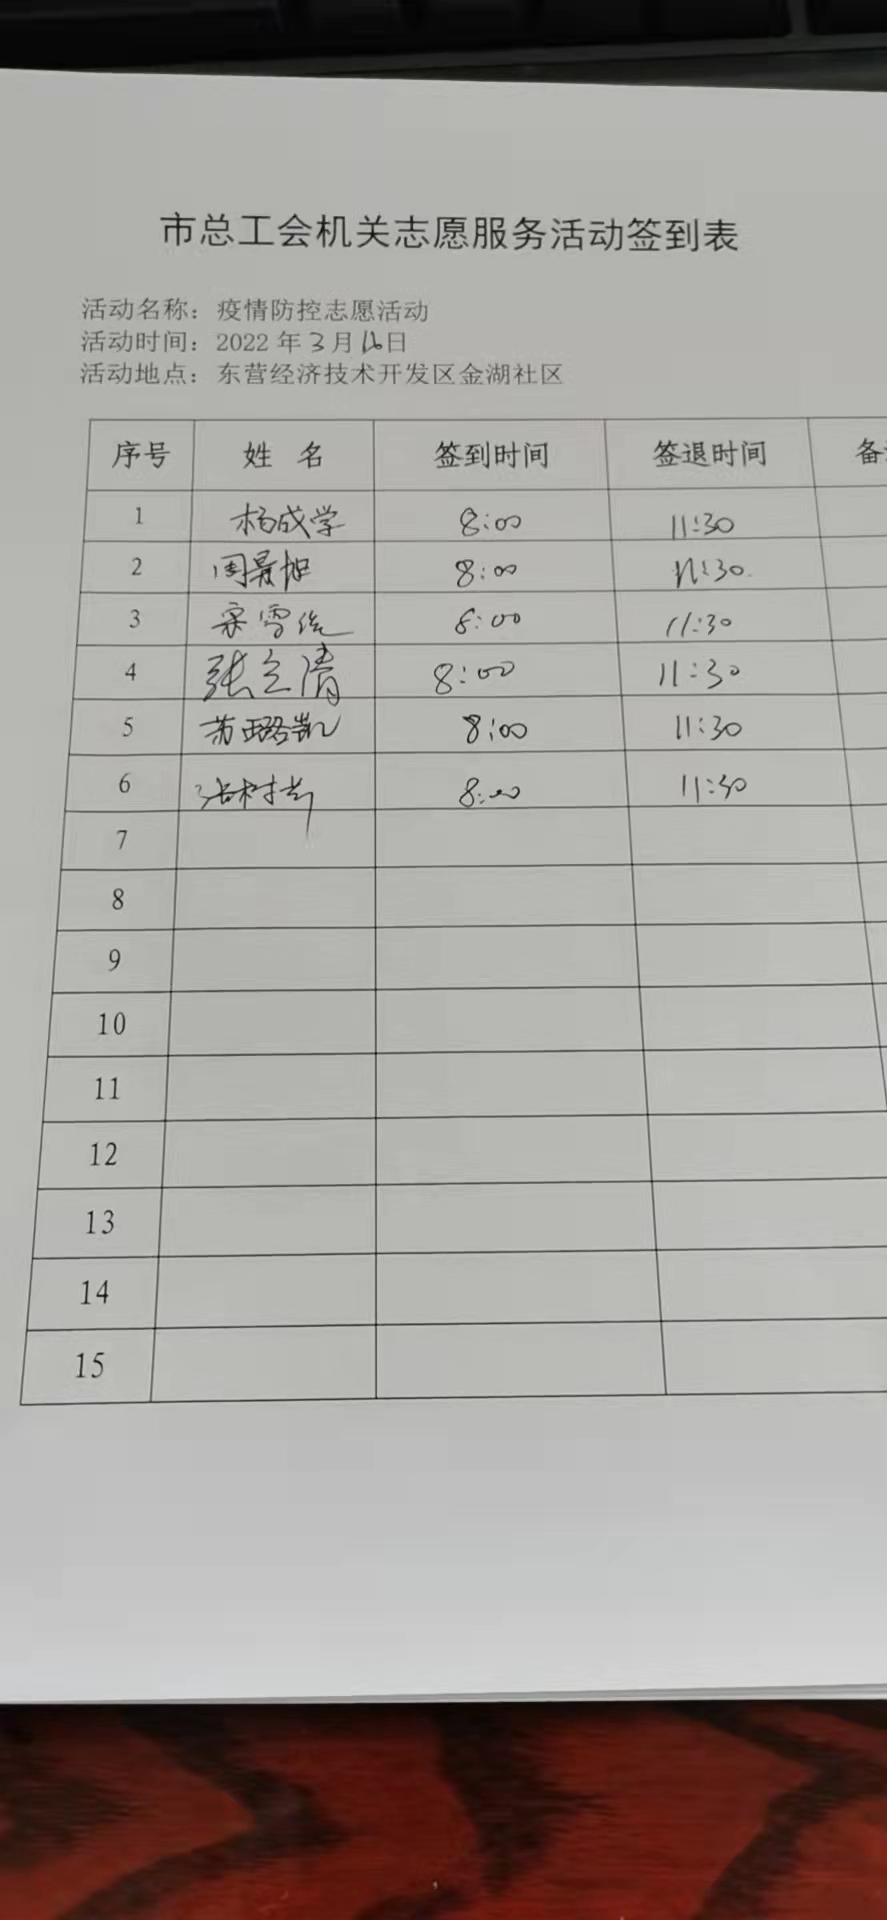 市总工会机关志愿服务活动签到表
活动名称：疫情防控志愿活动
活动时间：2022 年 3 月 16 日
活动地点：东营经济技术开发区金湖社区
序号 姓 名 签到时间 签退时间 备
1 杨成学 8:00 11:30
2 周景旭 8:00 11:30
3 8:00 11:30
4 张立清 8:00 11:30
5 苏璐凯 8:00 11:30
6 8:00 11:30
7
8
9
10
11
12
13
14
15